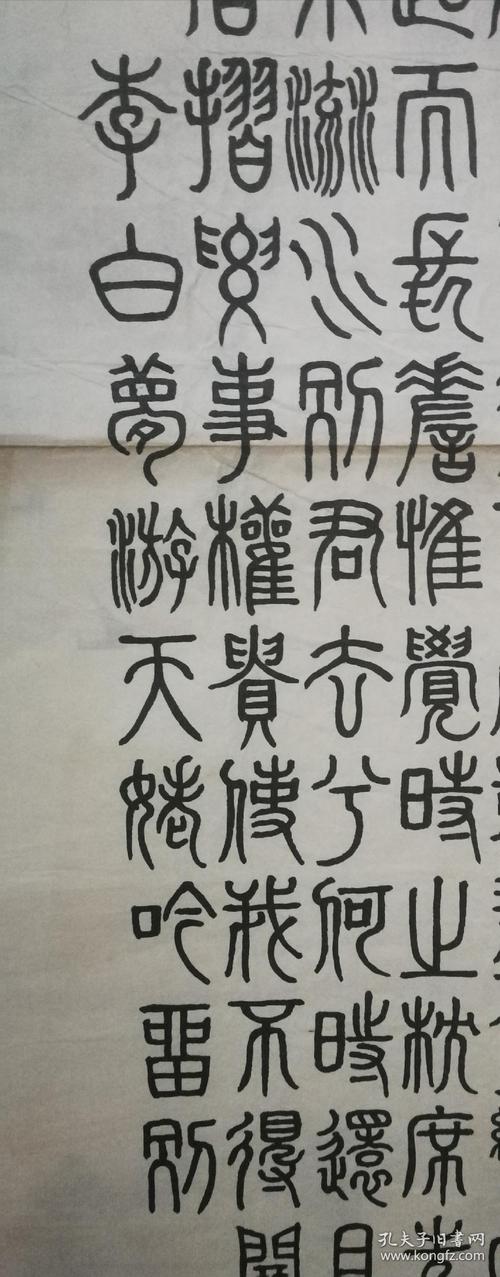 而長嗟惟覺時之枕席
流水別君去兮何時還且
摺腰事權貴使我不得開
李白夢游天姥吟留別
孔夫子旧书网
www.kongfz.com